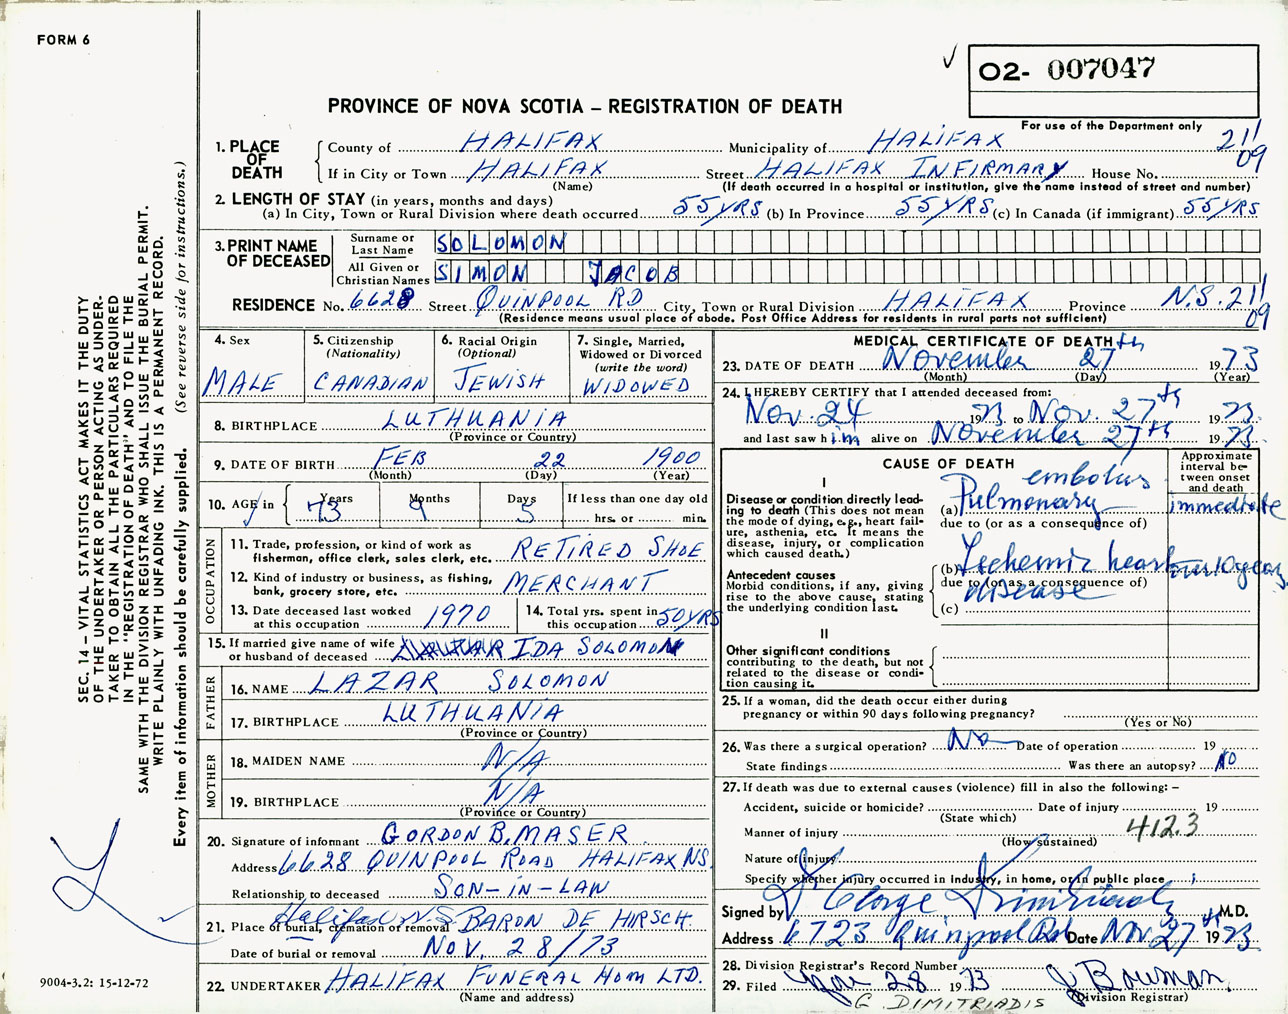 FORM 6
✓
O2- 007047
PROVINCE OF NOVA SCOTIA – REGISTRATION OF DEATH
For use of the Department only
1. PLACE OF DEATH
County of HALIFAX Municipality of HALIFAX 211
If in City or Town HALIFAX Street HALIFAX INFIRMARY House No. 09
(Name) (If death occurred in a hospital or institution, give the name instead of street and number)
2. LENGTH OF STAY (in years, months and days)
(a) In City, Town or Rural Division where death occurred 55 YRS (b) In Province 55 YRS (c) In Canada (if immigrant) 55 YRS
3. PRINT NAME OF DECEASED
Surname or Last Name SOLOMON
All Given or Christian Names SIMON JACOB
RESIDENCE No. 6628 Street QUINPOOL RD City, Town or Rural Division HALIFAX Province N.S. 211
(Residence means usual place of abode. Post Office Address for residents in rural parts not sufficient) 09
4. Sex
MALE
5. Citizenship
(Nationality)
CANADIAN
6. Racial Origin
(Optional)
JEWISH
7. Single, Married,
Widowed or Divorced
(write the word)
WIDOWED
8. BIRTHPLACE LUTHUANIA
(Province or Country)
9. DATE OF BIRTH FEB 22 1900
(Month) (Day) (Year)
10. AGE in
Years 73
Months 9
Days 5
If less than one day old
hrs. or min.
OCCUPATION
11. Trade, profession, or kind of work as
fisherman, office clerk, sales clerk, etc. RETIRED SHOE
12. Kind of industry or business, as fishing,
bank, grocery store, etc. MERCHANT
13. Date deceased last worked
at this occupation 1970
14. Total yrs. spent in
this occupation 50 YRS
15. If married give name of wife
or husband of deceased IDA SOLOMON
FATHER
16. NAME LAZAR SOLOMON
17. BIRTHPLACE LUTHUANIA
(Province or Country)
MOTHER
18. MAIDEN NAME N/A
19. BIRTHPLACE N/A
(Province or Country)
20. Signature of informant GORDON B. MASER
Address 6628 QUINPOOL ROAD HALIFAX NS.
Relationship to deceased SON-IN-LAW
21. Place of burial, cremation or removal Halifax N.S. BARON DE HIRSCH.
Date of burial or removal NOV. 28/73
22. UNDERTAKER HALIFAX FUNERAL HOM LTD.
(Name and address)
MEDICAL CERTIFICATE OF DEATH
23. DATE OF DEATH November 27th 1973
(Month) (Day) (Year)
24. I HEREBY CERTIFY that I attended deceased from:
Nov. 24 1973 to Nov. 27th 1973
and last saw him alive on November 27th 1973.
CAUSE OF DEATH
Approximate interval between onset and death
I
Disease or condition directly leading to death (This does not mean the mode of dying, e.g., heart failure, asthenia, etc. It means the disease, injury, or complication which caused death.)
(a) Pulmonary embolus immediate
due to (or as a consequence of)
Antecedent causes
Morbid conditions, if any, giving rise to the above cause, stating the underlying condition last.
(b) Ischemic heart disease 10 years
due to (or as a consequence of)
(c)
II
Other significant conditions
contributing to the death, but not related to the disease or condition causing it.
25. If a woman, did the death occur either during
pregnancy or within 90 days following pregnancy?
(Yes or No)
26. Was there a surgical operation? No Date of operation 19
State findings Was there an autopsy? No
27. If death was due to external causes (violence) fill in also the following: –
Accident, suicide or homicide? Date of injury 19
(State which)
Manner of injury 412.3
(How sustained)
Nature of injury
Specify whether injury occurred in Industry, in home, or in public place
Signed by George M.D.
Address 6723 Quinpool Rd Date Nov. 27th 1973
28. Division Registrar's Record Number
29. Filed Nov 28 1973 J Bowman
G. DIMITRIADIS (Division Registrar)
SEC. 14 – VITAL STATISTICS ACT MAKES IT THE DUTY
OF THE UNDERTAKER OR PERSON ACTING AS UNDER-
TAKER TO OBTAIN ALL THE PARTICULARS REQUIRED
IN THE "REGISTRATION OF DEATH" AND TO FILE THE
SAME WITH THE DIVISION REGISTRAR WHO SHALL ISSUE THE BURIAL PERMIT.
WRITE PLAINLY WITH UNFADING INK. THIS IS A PERMANENT RECORD.
Every item of information should be carefully supplied. (See reverse side for instructions.)
9004-3.2: 15-12-72